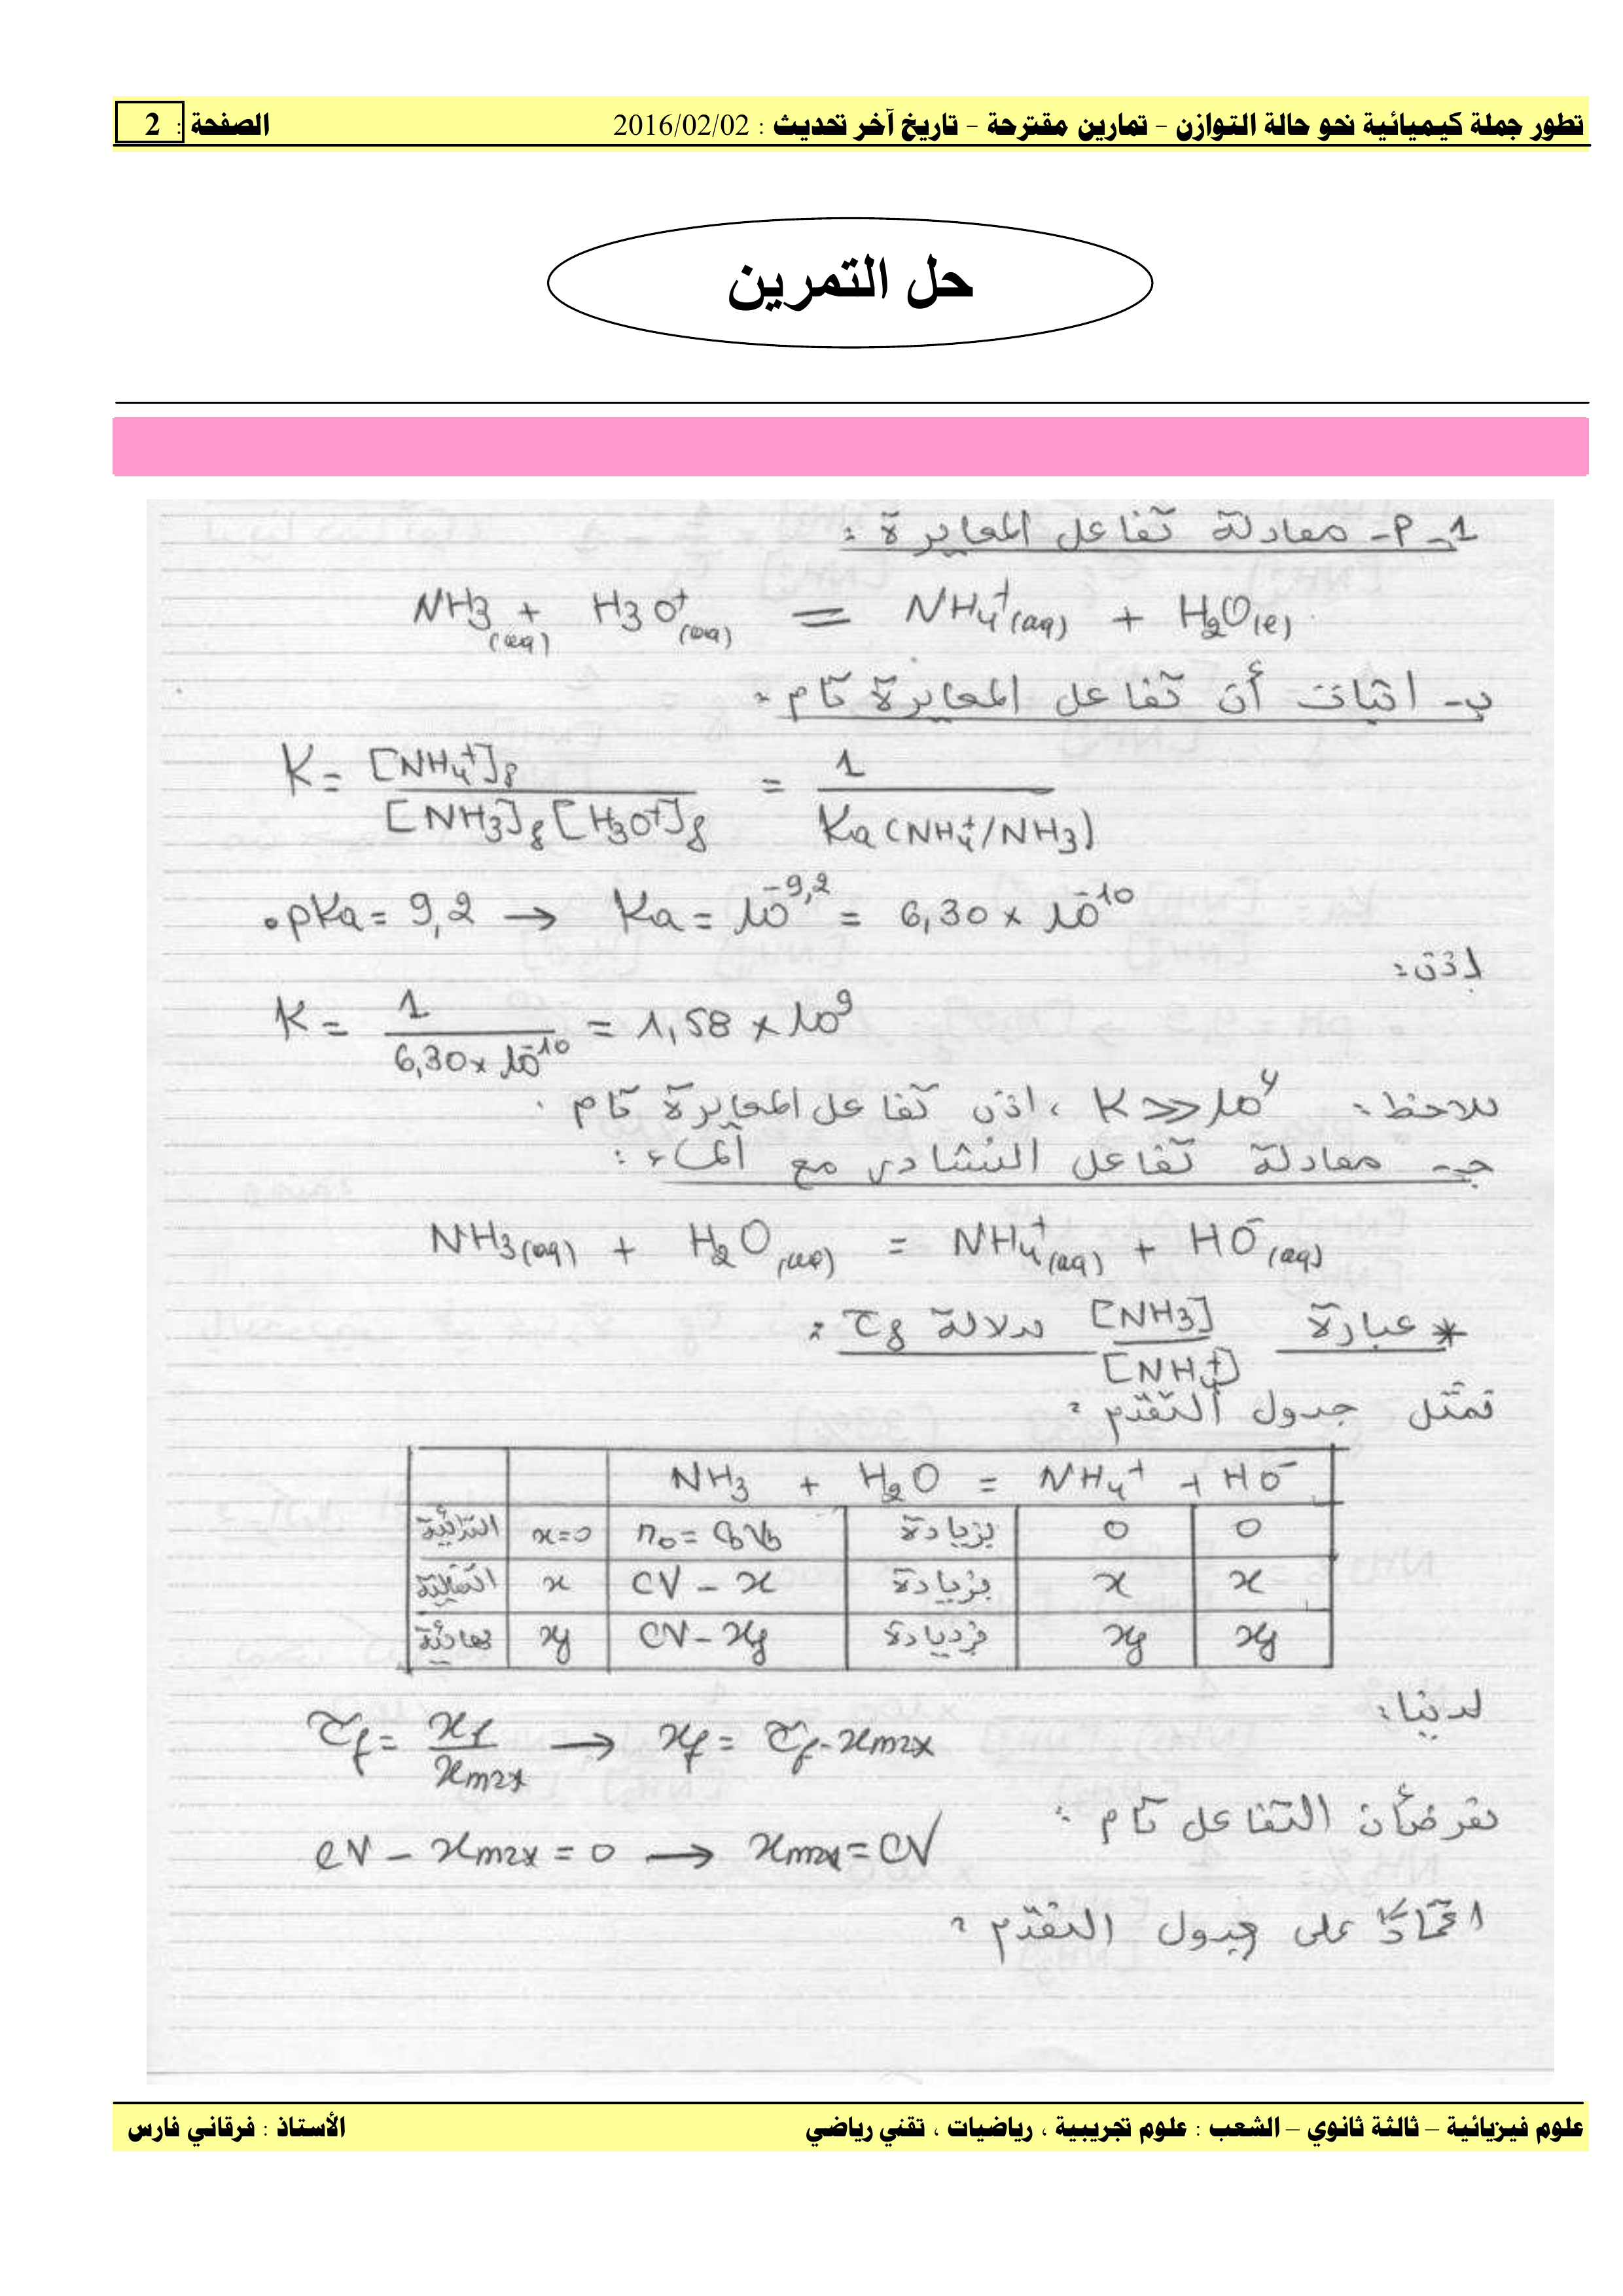 تطور جملة كيميائية نحو حالة التوازن – تمارين مقترحة – تاريخ آخر تحديث : 2016/02/02 الصفحة : 2
حل التمرين
1-أ- معادلة تفاعل المعايرة :
NH3(aq) + H3O+(aq) = NH4+(aq) + H2O(l)
ب- اثبات أن تفاعل المعايرة تام :
K = [NH4+]f / [NH3]f [H3O+]f = 1 / Ka (NH4+/NH3)
• pKa = 9,2 → Ka = 10^-9,2 = 6,30 × 10^-10
إذن :
K = 1 / 6,30 × 10^-10 = 1,58 × 10^9
نلاحظ : K >> 10^4 ، اذن تفاعل المعايرة تام .
جـ- معادلة تفاعل النشادر مع الماء :
NH3(aq) + H2O = NH4+(aq) + HO-(aq)
* عبارة [NH3] / [NH4+] بدلالة τf :
نمثل جدول التقدم :
NH3 + H2O = NH4+ + HO-
x=0 n0 = CbVb بزيادة 0 0
x CV - x بزيادة x x
xf CV - xf بزيادة xf xf
لدينا :
τf = xf / xmax → xf = τf . xmax
بفرض أن التفاعل تام :
CV - xmax = 0 → xmax = CV
اعتمادًا على جدول التقدم :
علوم فيزيائية – ثالثة ثانوي – الشعب : علوم تجريبية ، رياضيات ، تقني رياضي الأستاذ : فرقاني فارس